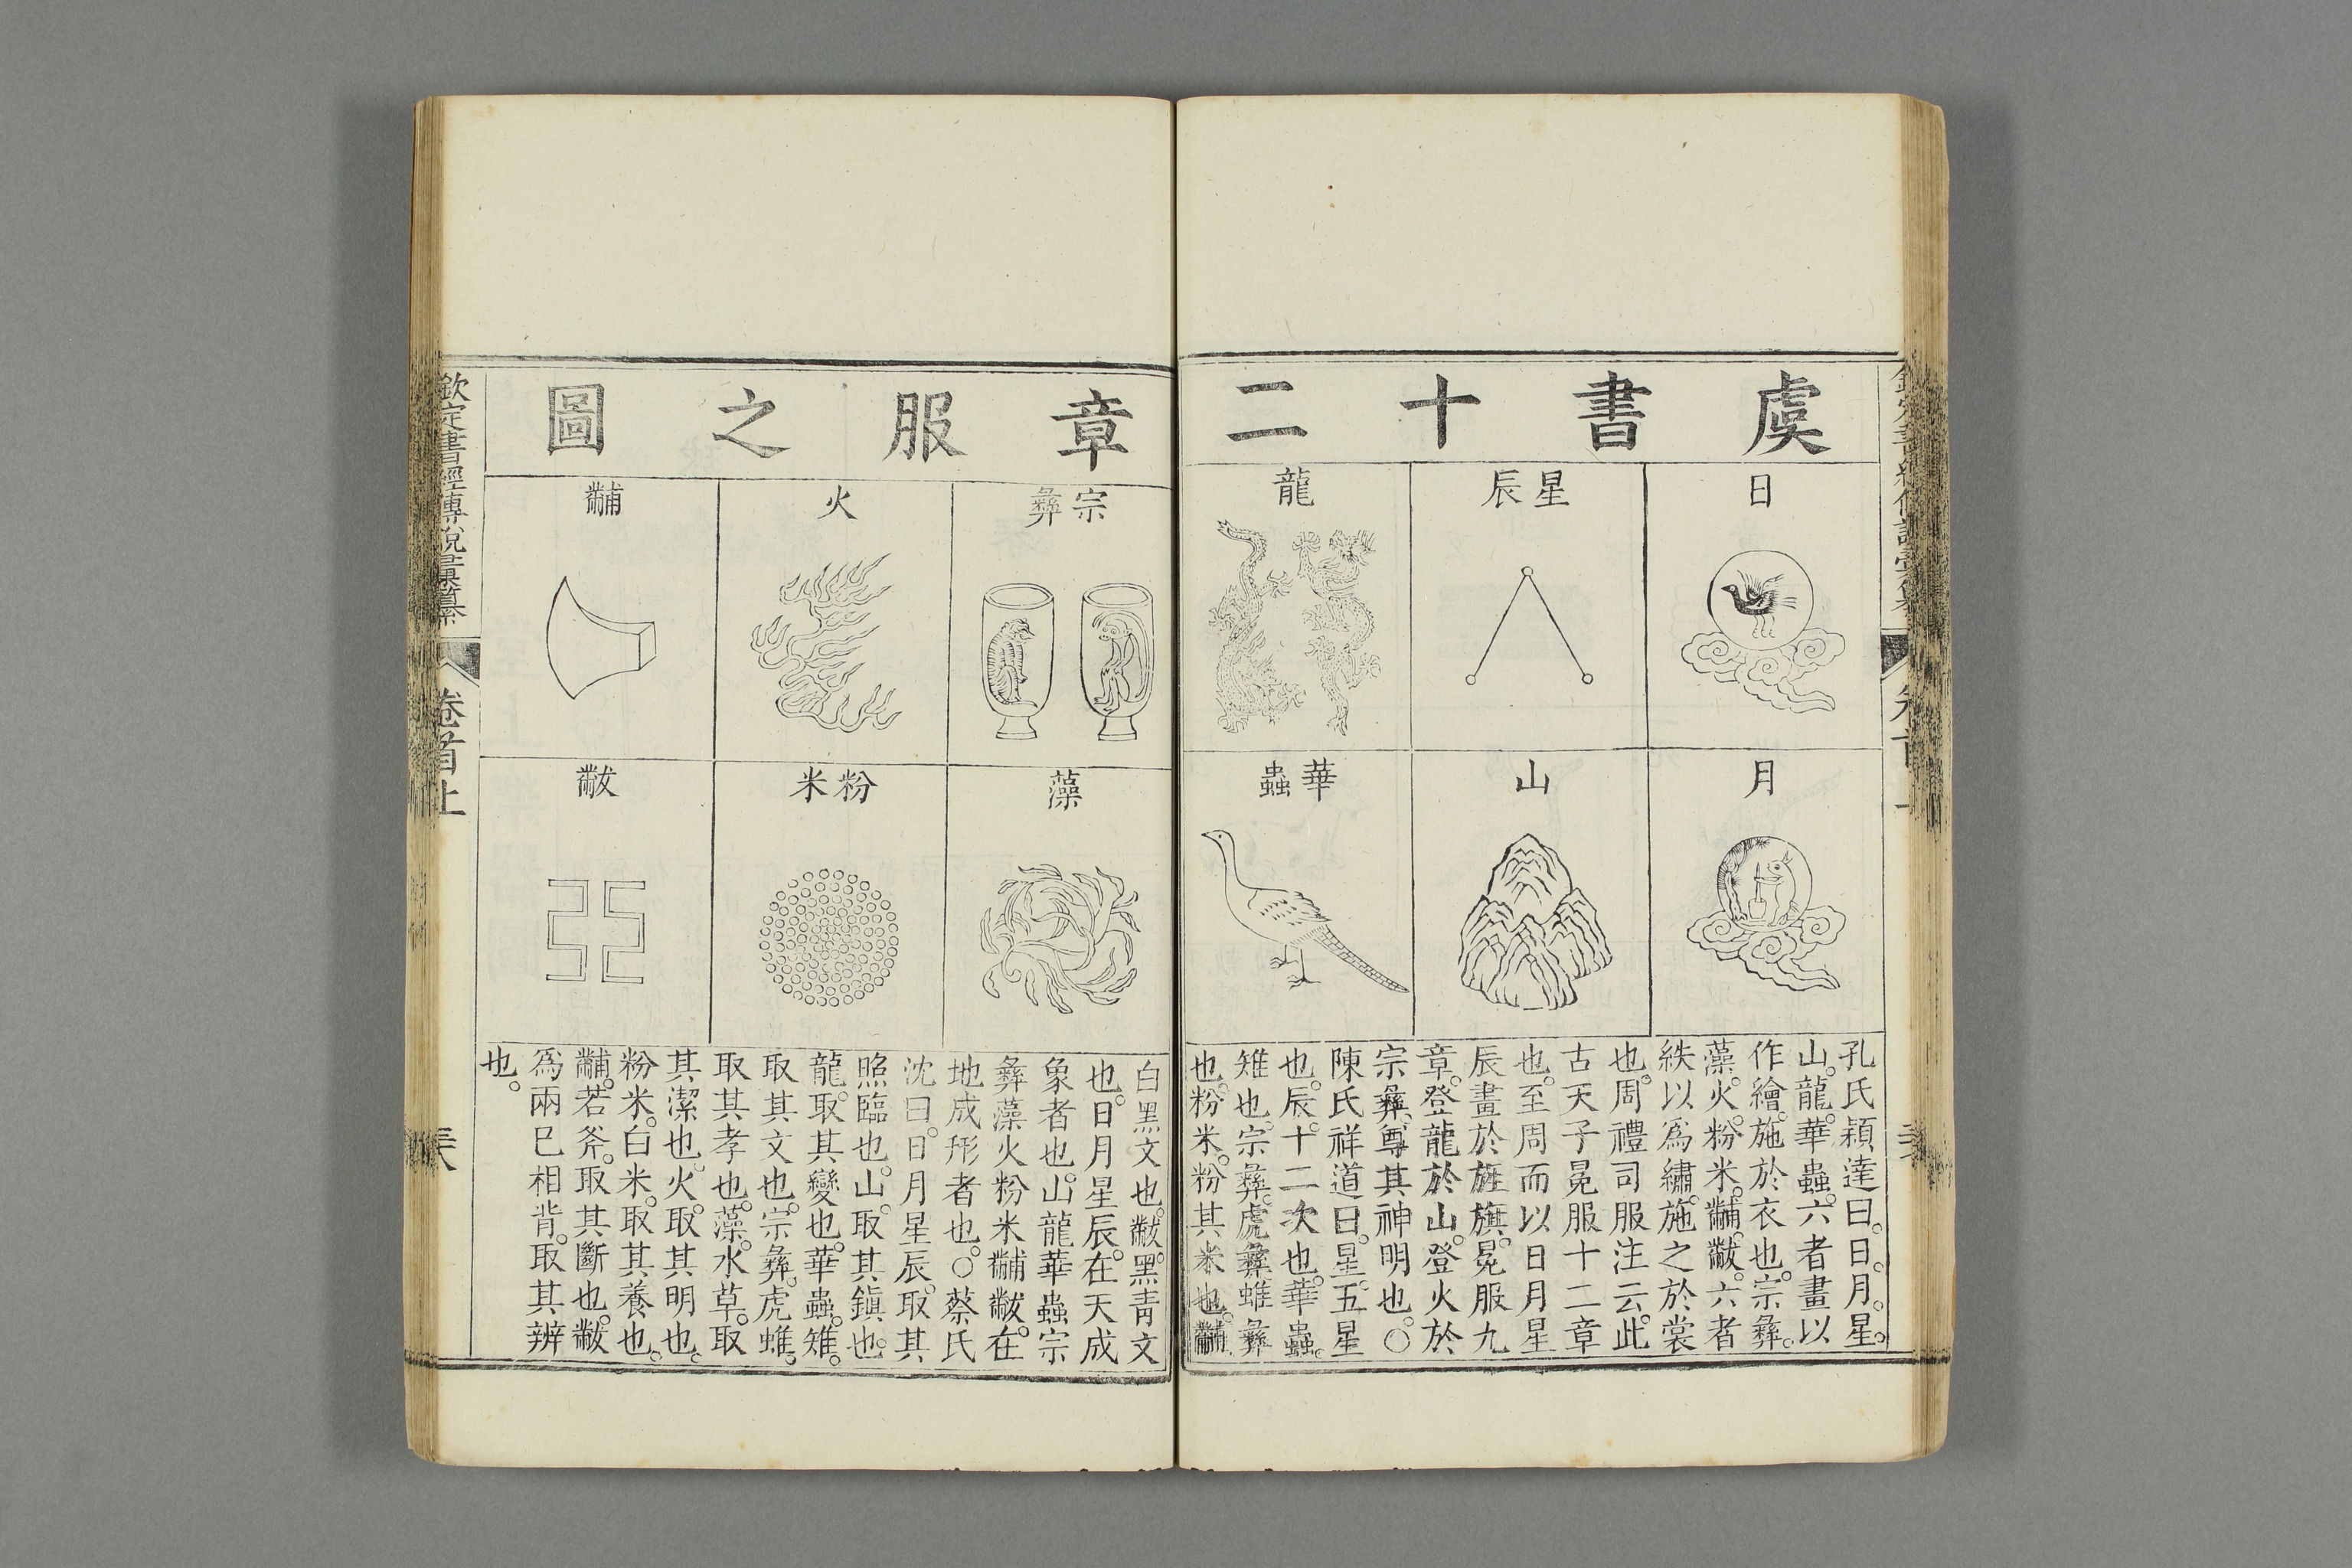 虞書十二
日
月
星辰
山
龍
華蟲
孔氏穎達曰。日。月。星。
山。龍。華蟲。六者畫以
作繪。施於衣也。宗彝。
藻。火。粉米。黼。黻。六者
紩以爲繡。施之於裳
也。周禮司服注云。此
古天子冕服十二章
也。至周而以日月星
辰畫於旌旗。冕服九
章。登龍於山。登火於
宗彝。尊其神明也。○
陳氏祥道曰。星。五星
也。辰。十二次也。華蟲。
雉也。宗彝。虎彝蜼彝
也。粉米。粉其米也。黼。
章服之圖
宗彝
藻
火
粉米
黼
黻
白黑文也。黻。黑青文
也。日月星辰。在天成
象者也。山龍華蟲宗
彝藻火粉米黼黻。在
地成形者也。○蔡氏
沈曰。日月星辰。取其
照臨也。山。取其鎭也。
龍。取其變也。華蟲。雉。
取其文也。宗彝。虎蜼。
取其孝也。藻。水草。取
其潔也。火。取其明也。
粉米。白米。取其養也。
黼。若斧。取其斷也。黻
爲兩巳相背。取其辨
也。
欽定書經傳說彙纂
卷首上